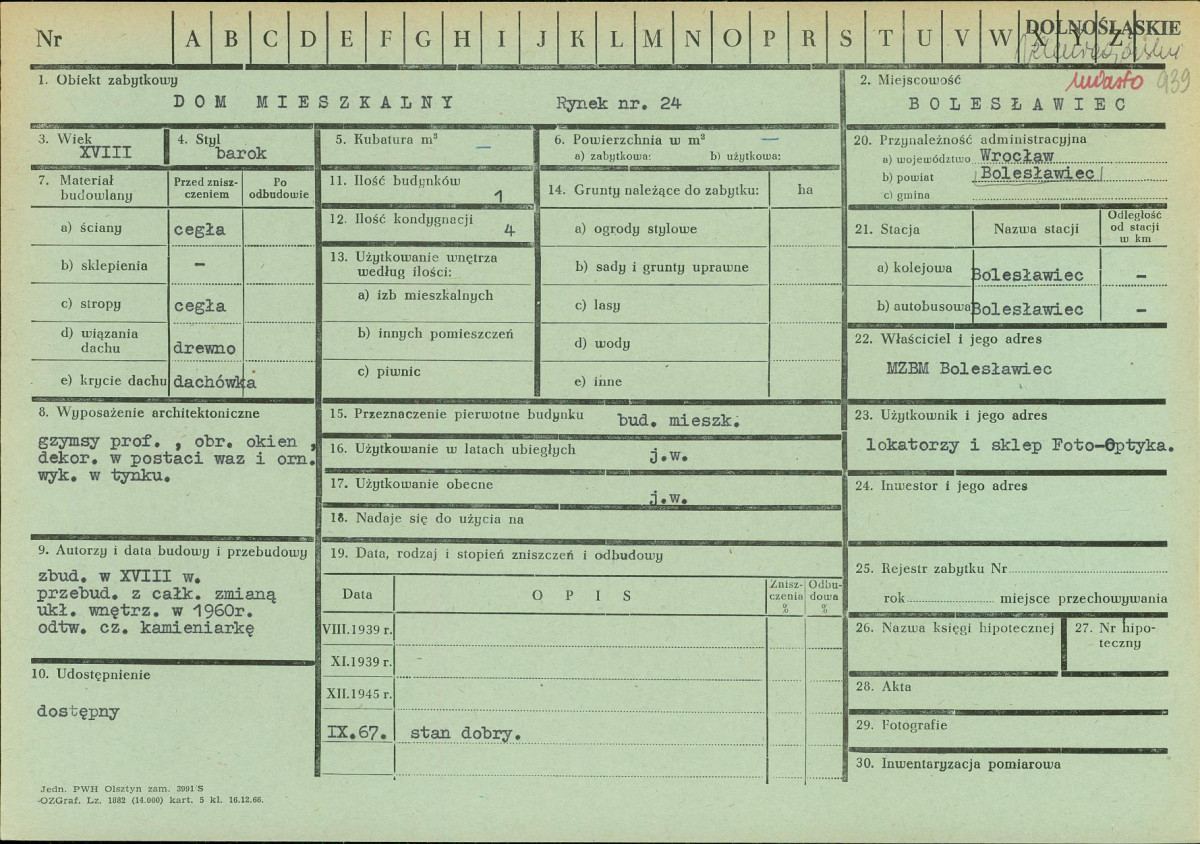 Nr A B C D E F G H I J K L M N O P R S T U V W X Y Z
DOLNOŚLĄSKIE
miasto 939
1. Obiekt zabytkowy
DOM MIESZKALNY Rynek nr. 24
2. Miejscowość
BOLESŁAWIEC
3. Wiek
XVIII
4. Styl
barok
5. Kubatura m³ —
6. Powierzchnia w m² —
a) zabytkowa: b) użytkowa:
7. Materiał budowlany
Przed znisz-
czeniem
Po
odbudowie
a) ściany cegła
b) sklepienia –
c) stropy cegła
d) wiązania
dachu drewno
e) krycie dachu dachówka
8. Wyposażenie architektoniczne
gzymsy prof. , obr. okien ,
dekor. w postaci waz i orn.
wyk. w tynku.
9. Autorzy i data budowy i przebudowy
zbud. w XVIII w.
przebud. z całk. zmianą
ukł. wnętrz. w 1960r.
odtw. cz. kamieniarkę
10. Udostępnienie
dostępny
11. Ilość budynków 1
12. Ilość kondygnacji 4
13. Użytkowanie wnętrza
według ilości:
a) izb mieszkalnych
b) innych pomieszczeń
c) piwnic
14. Grunty należące do zabytku: ha
a) ogrody stylowe
b) sady i grunty uprawne
c) lasy
d) wody
e) inne
15. Przeznaczenie pierwotne budynku bud. mieszk.
16. Użytkowanie w latach ubiegłych j.w.
17. Użytkowanie obecne j.w.
18. Nadaje się do użycia na
19. Data, rodzaj i stopień zniszczeń i odbudowy
Data OPIS Znisz-
czenia
%
Odbu-
dowa
%
VIII.1939 r.
XI.1939 r.
XII.1945 r.
IX.67. stan dobry.
20. Przynależność administracyjna
a) województwo Wrocław
b) powiat Bolesławiec
c) gmina
21. Stacja Nazwa stacji Odległość
od stacji
w km
a) kolejowa Bolesławiec –
b) autobusowa Bolesławiec –
22. Właściciel i jego adres
MZBM Bolesławiec
23. Użytkownik i jego adres
lokatorzy i sklep Foto-Optyka.
24. Inwestor i jego adres
25. Rejestr zabytku Nr
rok miejsce przechowywania
26. Nazwa księgi hipotecznej
27. Nr hipo-
teczny
28. Akta
29. Fotografie
30. Inwentaryzacja pomiarowa
Jedn. PWH Olsztyn zam. 3991/S
-OZGraf. Lz. 1882 (14.000) kart. 5 kl. 16.12.66.